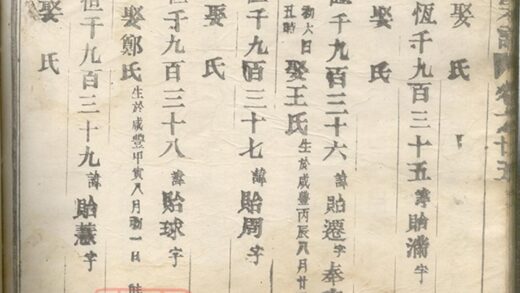 譜 卷之十五
娶 氏
恆千九百三十五 諱 貽滿 字
娶 氏
恆千九百三十六 諱 貽遷 字 奉
初六日
五時 娶王氏 生於咸豐丙辰八月廿
恆千九百三十七 諱 貽周 字
娶 氏
恆千九百三十八 諱 貽球 字
娶鄭氏 生於咸豐甲寅八月初一日
恆千九百三十九 諱 貽慧 字
娶 氏